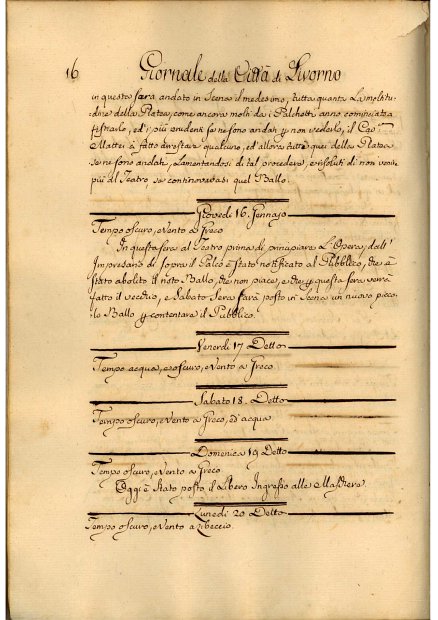 16 Giornale della Città di Livorno
in questa sera andato in Scena il medesimo, tutta quanta La moltitu-
dine della Platea, come ancora molti da i Palchetti anno cominciato a
fistiarlo, ed i più prudenti se ne sono andati p non vederlo, il Cap:
Mattei à fatto arrestar qualcuno, ed allora tutti quei della Platea
se ne sono andati, Lamentandosi di tal procedere, e risoluti di non venir
più al Teatro, se continoverassi quel Ballo.
Giovedi 16. Gennajo
Tempo oscuro, e Vento a Greco
In questa sera al Teatro prima di principiare L'Opera, dall'
Impresario di sopra il Palco è stato notificato al Pubblico, che è
stato abolito il noto Ballo, che non piace, e che p questa sera verrà
fatto il vecchio, e Sabato Sera sarà posto in Scena un nuovo picco-
lo Ballo p contentare il Pubblico.
Venerdi 17 Detto
Tempo acqua, e oscuro, e Vento a Greco.
Sabato 18. Detto
Tempo oscuro, e Vento a Greco, ed acqua
Domenica 19 Detto
Tempo oscuro, e Vento a Greco
Oggi è stato posto il Libero Ingresso alle Maschere.
Lunedi 20 Detto
Tempo oscuro, e Vento a Libeccio.